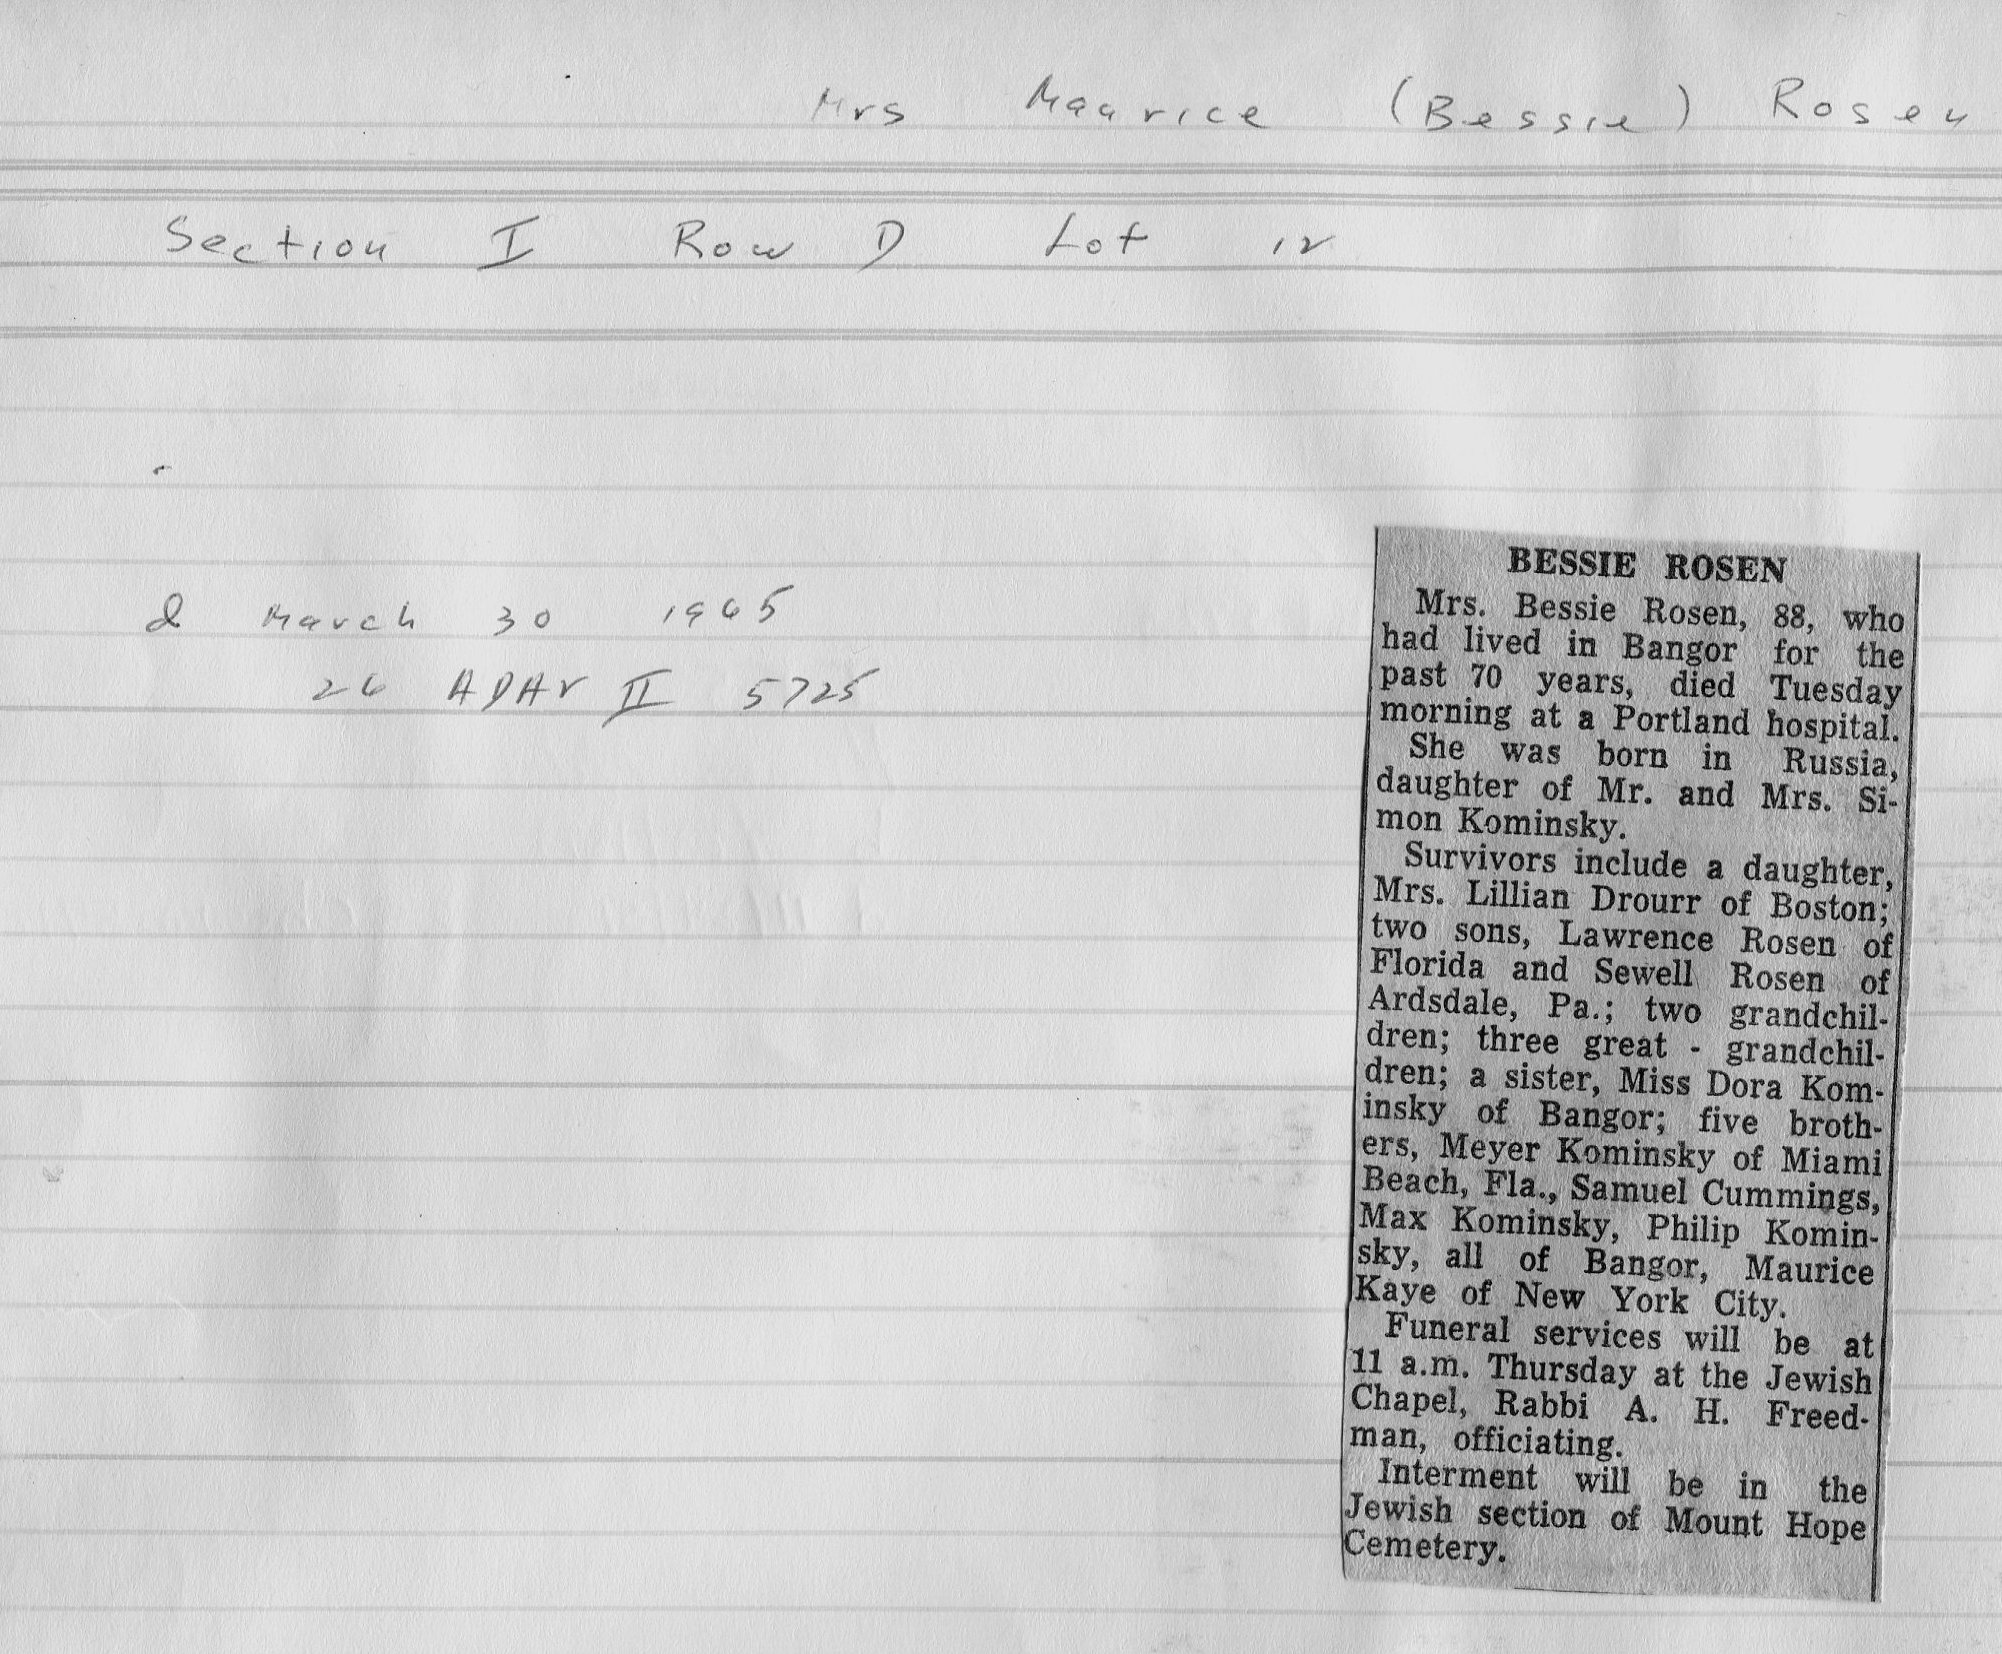 Mrs Maurice (Bessie) Rosen
Section I Row D Lot 12
d March 30 1965
26 ADAR II 5725
BESSIE ROSEN
Mrs. Bessie Rosen, 88, who
had lived in Bangor for the
past 70 years, died Tuesday
morning at a Portland hospital.
She was born in Russia,
daughter of Mr. and Mrs. Si-
mon Kominsky.
Survivors include a daughter,
Mrs. Lillian Drourr of Boston;
two sons, Lawrence Rosen of
Florida and Sewell Rosen of
Ardsdale, Pa.; two grandchil-
dren; three great - grandchil-
dren; a sister, Miss Dora Kom-
insky of Bangor; five broth-
ers, Meyer Kominsky of Miami
Beach, Fla., Samuel Cummings,
Max Kominsky, Philip Komin-
sky, all of Bangor, Maurice
Kaye of New York City.
Funeral services will be at
11 a.m. Thursday at the Jewish
Chapel, Rabbi A. H. Freed-
man, officiating.
Interment will be in the
Jewish section of Mount Hope
Cemetery.